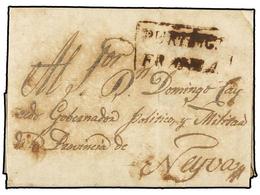 FRANCA
Al Sor
Dn Domingo Cay
cedo Gobernador Politico, y Militar
de la Provincia de
Neyva